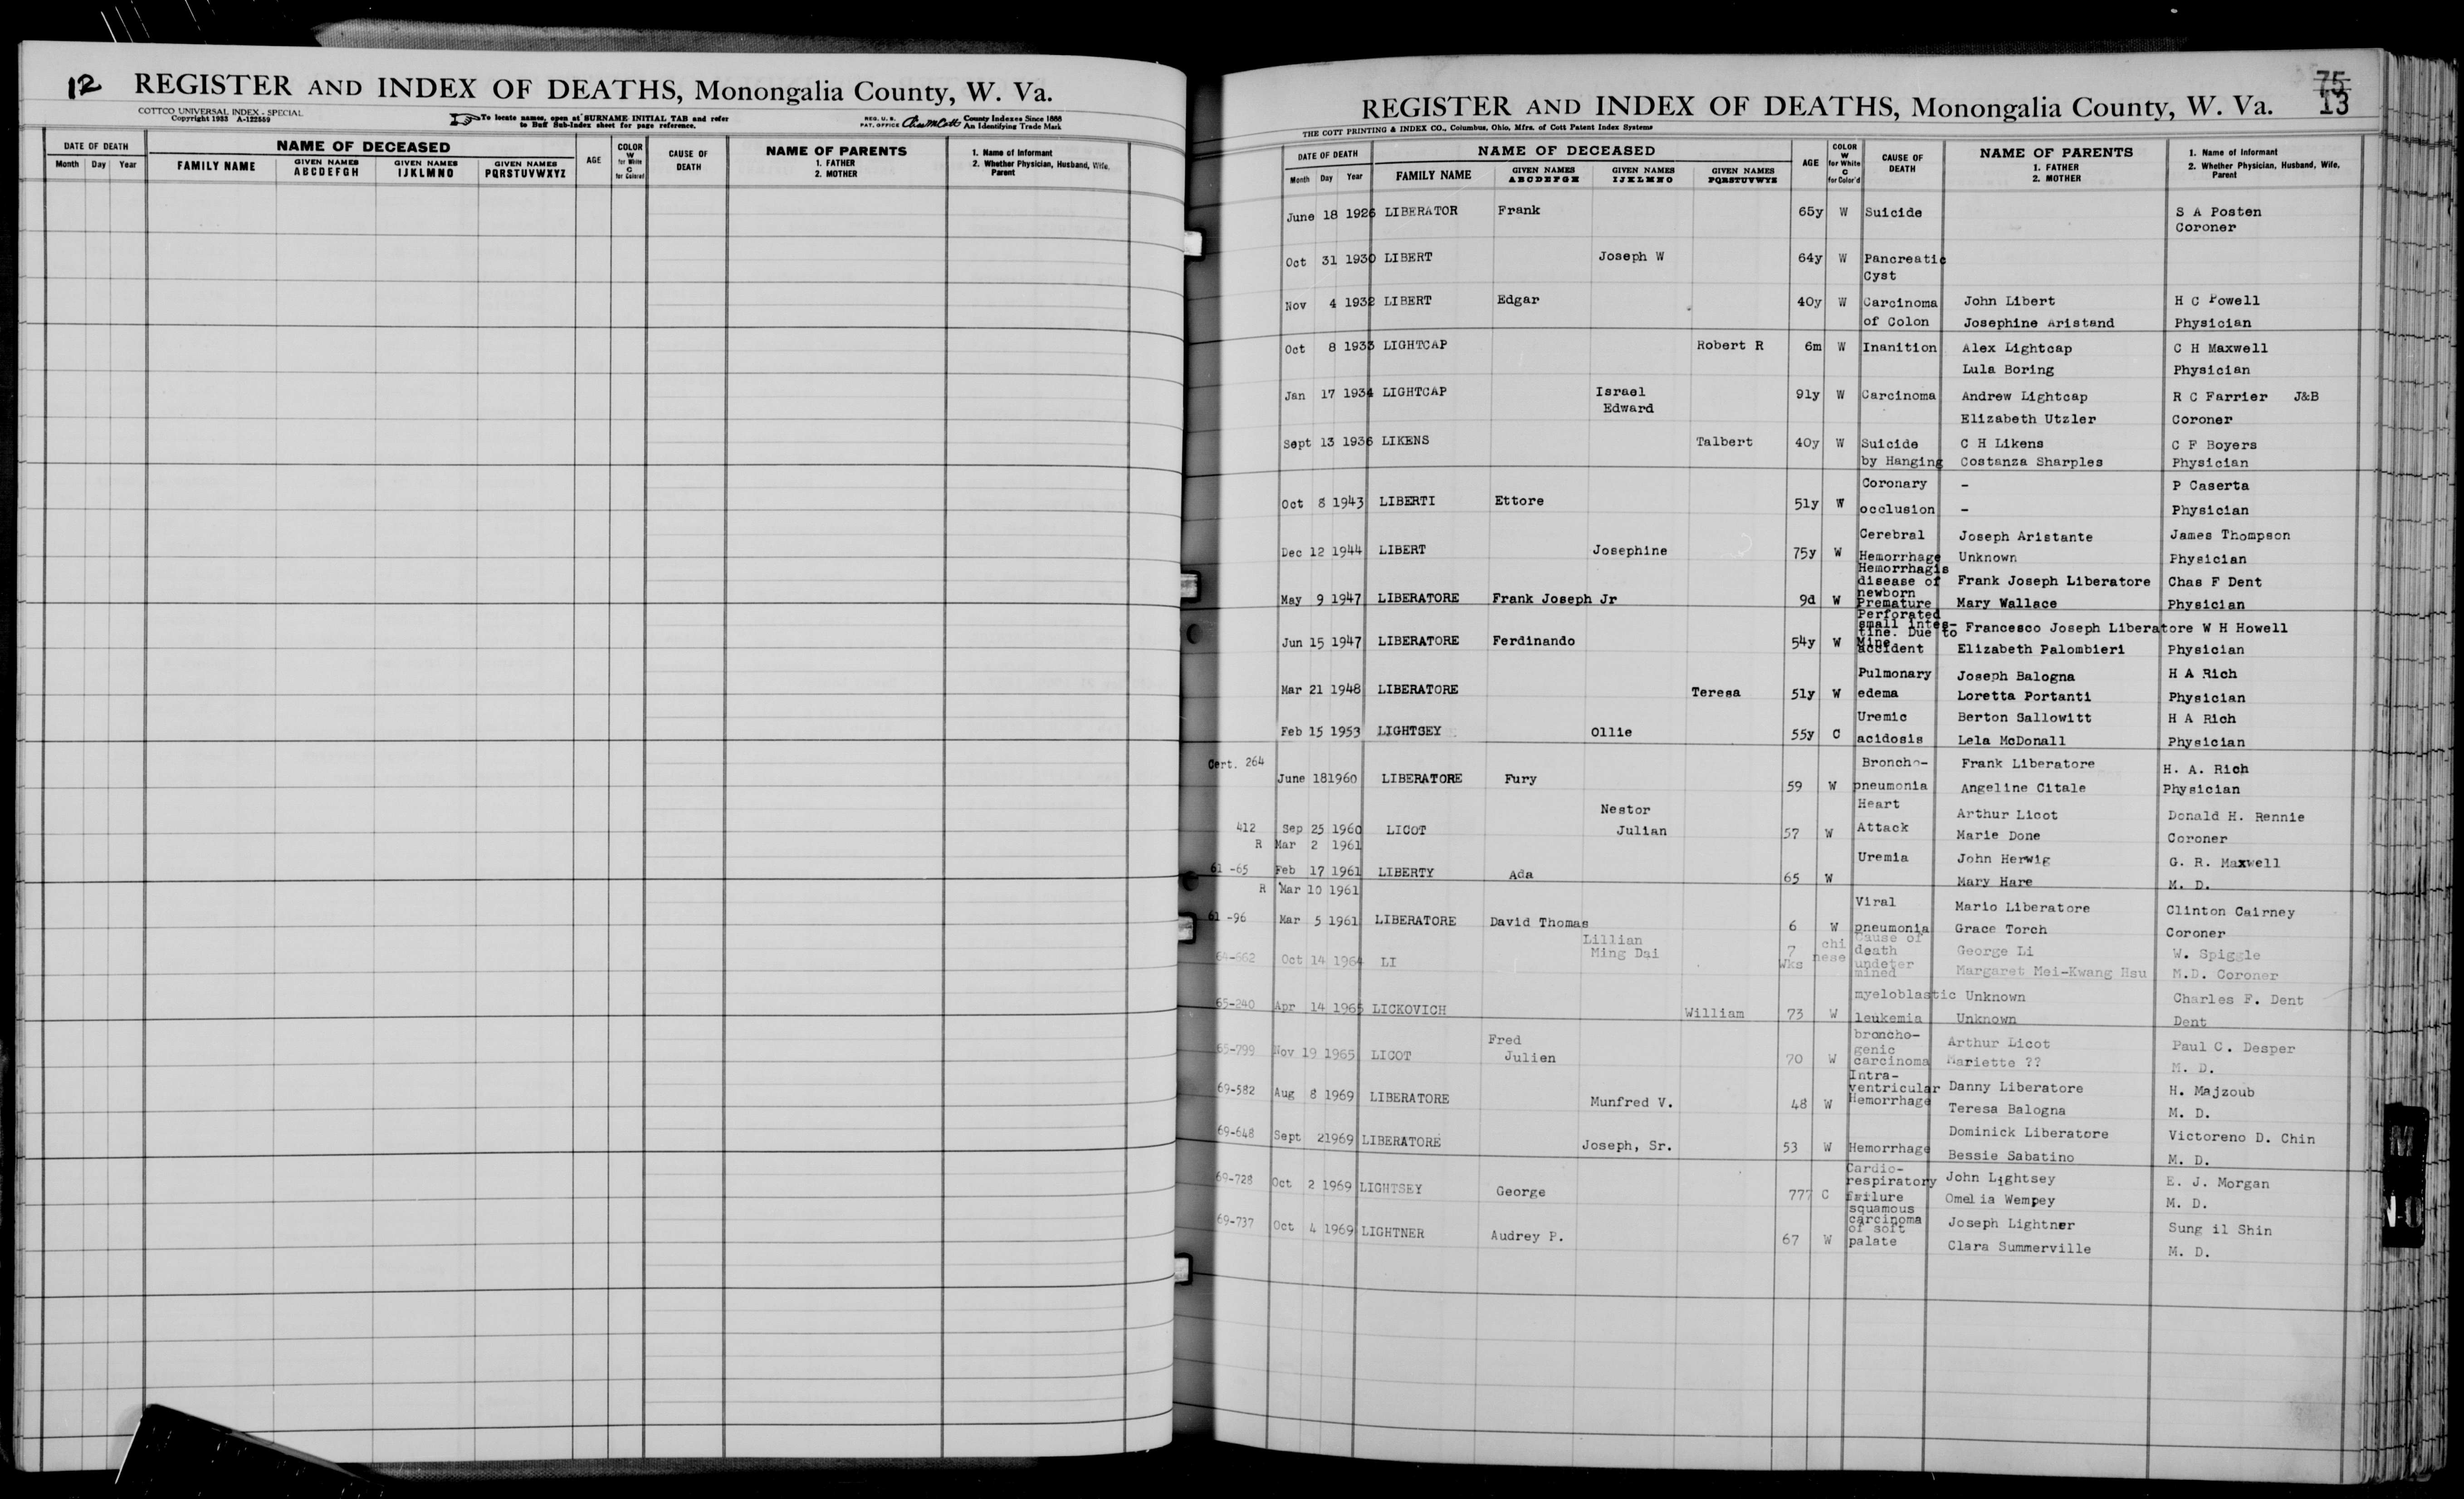 12 REGISTER AND INDEX OF DEATHS, Monongalia County, W. Va.
COTTCO UNIVERSAL INDEX - SPECIAL
Copyright 1933 A-122589
To locate names, open at SURNAME INITIAL TAB and refer
to Buff Sub-Index sheet for page reference.
REG. U. S. PAT. OFFICE County Indexes Since 1888
An Identifying Trade Mark
DATE OF DEATH NAME OF DECEASED AGE COLOR W for White C for Colored CAUSE OF DEATH NAME OF PARENTS 1. FATHER 2. MOTHER 1. Name of Informant 2. Whether Physician, Husband, Wife, Parent
Month Day Year FAMILY NAME GIVEN NAMES ABCDEFGH GIVEN NAMES IJKLMNO GIVEN NAMES PQRSTUVWXYZ
75
13
REGISTER AND INDEX OF DEATHS, Monongalia County, W. Va.
THE COTT PRINTING & INDEX CO., Columbus, Ohio, Mfrs. of Cott Patent Index Systems
DATE OF DEATH NAME OF DECEASED AGE COLOR W for White C for Color'd CAUSE OF DEATH NAME OF PARENTS 1. FATHER 2. MOTHER 1. Name of Informant 2. Whether Physician, Husband, Wife, Parent
Month Day Year FAMILY NAME GIVEN NAMES ABCDEFGH GIVEN NAMES IJKLMNO GIVEN NAMES PQRSTUVWXYZ
June 18 1926 LIBERATOR Frank 65y W Suicide S A Posten
Coroner
Oct 31 1930 LIBERT Joseph W 64y W Pancreatic
Cyst
Nov 4 1932 LIBERT Edgar 40y W Carcinoma John Libert H C Powell
of Colon Josephine Aristand Physician
Oct 8 1933 LIGHTCAP Robert R 6m W Inanition Alex Lightcap C H Maxwell
Lula Boring Physician
Jan 17 1934 LIGHTCAP Israel 91y W Carcinoma Andrew Lightcap R C Farrier J&B
Edward Elizabeth Utzler Coroner
Sept 13 1936 LIKENS Talbert 40y W Suicide C H Likens C F Boyers
by Hanging Costanza Sharples Physician
Coronary - P Caserta
Oct 8 1943 LIBERTI Ettore 51y W occlusion - Physician
Cerebral Joseph Aristante James Thompson
Dec 12 1944 LIBERT Josephine 75y W Hemorrhage Unknown Physician
Hemorrhagis
disease of Frank Joseph Liberatore Chas F Dent
newborn
May 9 1947 LIBERATORE Frank Joseph Jr 9d W Premature Mary Wallace Physician
Perforated
small intes-
tine. Due to Francesco Joseph Liberatore W H Howell
Mine
Jun 15 1947 LIBERATORE Ferdinando 54y W accident Elizabeth Palombieri Physician
Pulmonary Joseph Balogna H A Rich
Mar 21 1948 LIBERATORE Teresa 51y W edema Loretta Portanti Physician
Uremic Berton Sallowitt H A Rich
Feb 15 1953 LIGHTSEY Ollie 55y C acidosis Lela McDonall Physician
Cert. 264 Broncho- Frank Liberatore H. A. Rich
June 18 1960 LIBERATORE Fury 59 W pneumonia Angeline Citale Physician
Nestor Heart Arthur Licot Donald H. Rennie
412 Sep 25 1960 LICOT Julian 57 W Attack Marie Done Coroner
R Mar 2 1961
Uremia John Herwig G. R. Maxwell
61 -65 Feb 17 1961 LIBERTY Ada 65 W Mary Hare M. D.
R Mar 10 1961
Viral Mario Liberatore Clinton Cairney
61 -96 Mar 5 1961 LIBERATORE David Thomas 6 W pneumonia Grace Torch Coroner
Lillian Cause of
64-662 Oct 14 1964 LI Ming Dai 7 Wks chi nese death George Li W. Spiggle
undeter
mined Margaret Mei-Kwang Hsu M.D. Coroner
myeloblastic Unknown Charles F. Dent
65-240 Apr 14 1965 LICKOVICH William 73 W leukemia Unknown Dent
Fred broncho-
genic Arthur Licot Paul C. Desper
65-799 Nov 19 1965 LICOT Julien 70 W carcinoma Mariette ?? M. D.
Intra-
69-582 ventricular Danny Liberatore H. Majzoub
Aug 8 1969 LIBERATORE Munfred V. 48 W Hemorrhage Teresa Balogna M. D.
69-648 Dominick Liberatore Victoreno D. Chin
Sept 2 1969 LIBERATORE Joseph, Sr. 53 W Hemorrhage Bessie Sabatino M. D.
Cardio-
69-728 respiratory John Lightsey E. J. Morgan
Oct 2 1969 LIGHTSEY George 77? C failure Omelia Wempey M. D.
squamous
carcinoma
69-737 of soft Joseph Lightner Sung il Shin
Oct 4 1969 LIGHTNER Audrey P. 67 W palate Clara Summerville M. D.